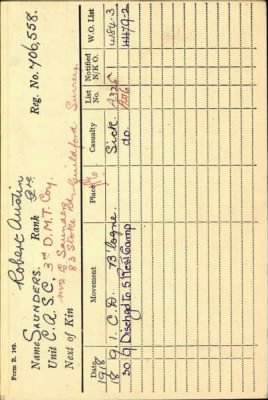 Form B. 149.
Robert Austin
Name SAUNDERS. Rank Pte Reg. No. 706,558.
Unit C.A.S.C. 3rd D.M.T. Coy.
Next of Kin Mrs Saunders
83 Stoke Rd Guildford Surrey
Date Movement Place Casualty List No. Notified N/K O. W.O. List
1918
18 9 1. C.D. B'logne. Sick A325 W184-3
30 9 Dischgd To 5 Rest Camp do. H479-2